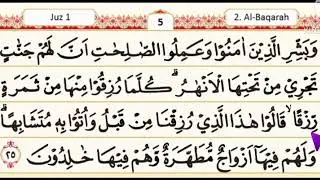 Juz 1
5
2. Al-Baqarah
وَبَشِّرِ الَّذِيْنَ اٰمَنُوْا وَعَمِلُوا الصّٰلِحٰتِ اَنَّ لَهُمْ جَنّٰتٍ
تَجْرِيْ مِنْ تَحْتِهَا الْاَنْهٰرُۗ كُلَّمَا رُزِقُوْا مِنْهَا مِنْ ثَمَرَةٍ
رِّزْقًاۙ قَالُوْا هٰذَا الَّذِيْ رُزِقْنَا مِنْ قَبْلُ وَاُتُوْا بِهٖ مُتَشَابِهًاۗ
وَلَهُمْ فِيْهَآ اَزْوَاجٌ مُّطَهَّرَةٌ وَّهُمْ فِيْهَا خٰلِدُوْنَ ٢٥